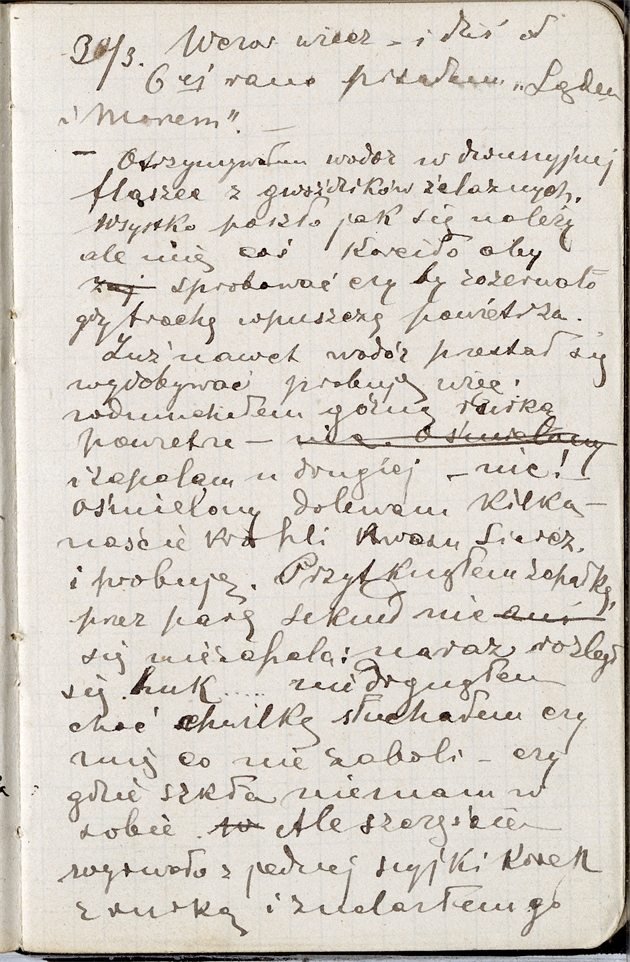 30/3. Wczor wiecz – i dziś od
6ej rano pisałem „Lądem
i Morem”. –
– Otrzymywałem wodór w dwuszyjnej
flaszce z gwoździków żelaznych.
Wszystko poszło jak się należy
ale mię coś kuciło aby
zaj sprobować czy by rozerwało
gdy trochę wpuszczę powietrza.
Już nawet wodór przestał się
wydobywać probuję więc:
wdmuchałem górną rurką
powietrze – nic. Ośmielony
i zapalam u drugiej – nic!
Ośmielony dolewam kilka-
naście kropli kwasu Siarcz.
i probuję. Przytknąłem zapałkę,
przez parę sekund nic ani
się nie zapala: naraz rozległ
się huk..... nie drgnąłem
choć chwilkę słuchałem czy
mię co nie zaboli – czy
gdzie szkła niemam w
sobie. w Ale szczęście
wyrwało z jednej szyjki korek
z rurką i znalazłem go